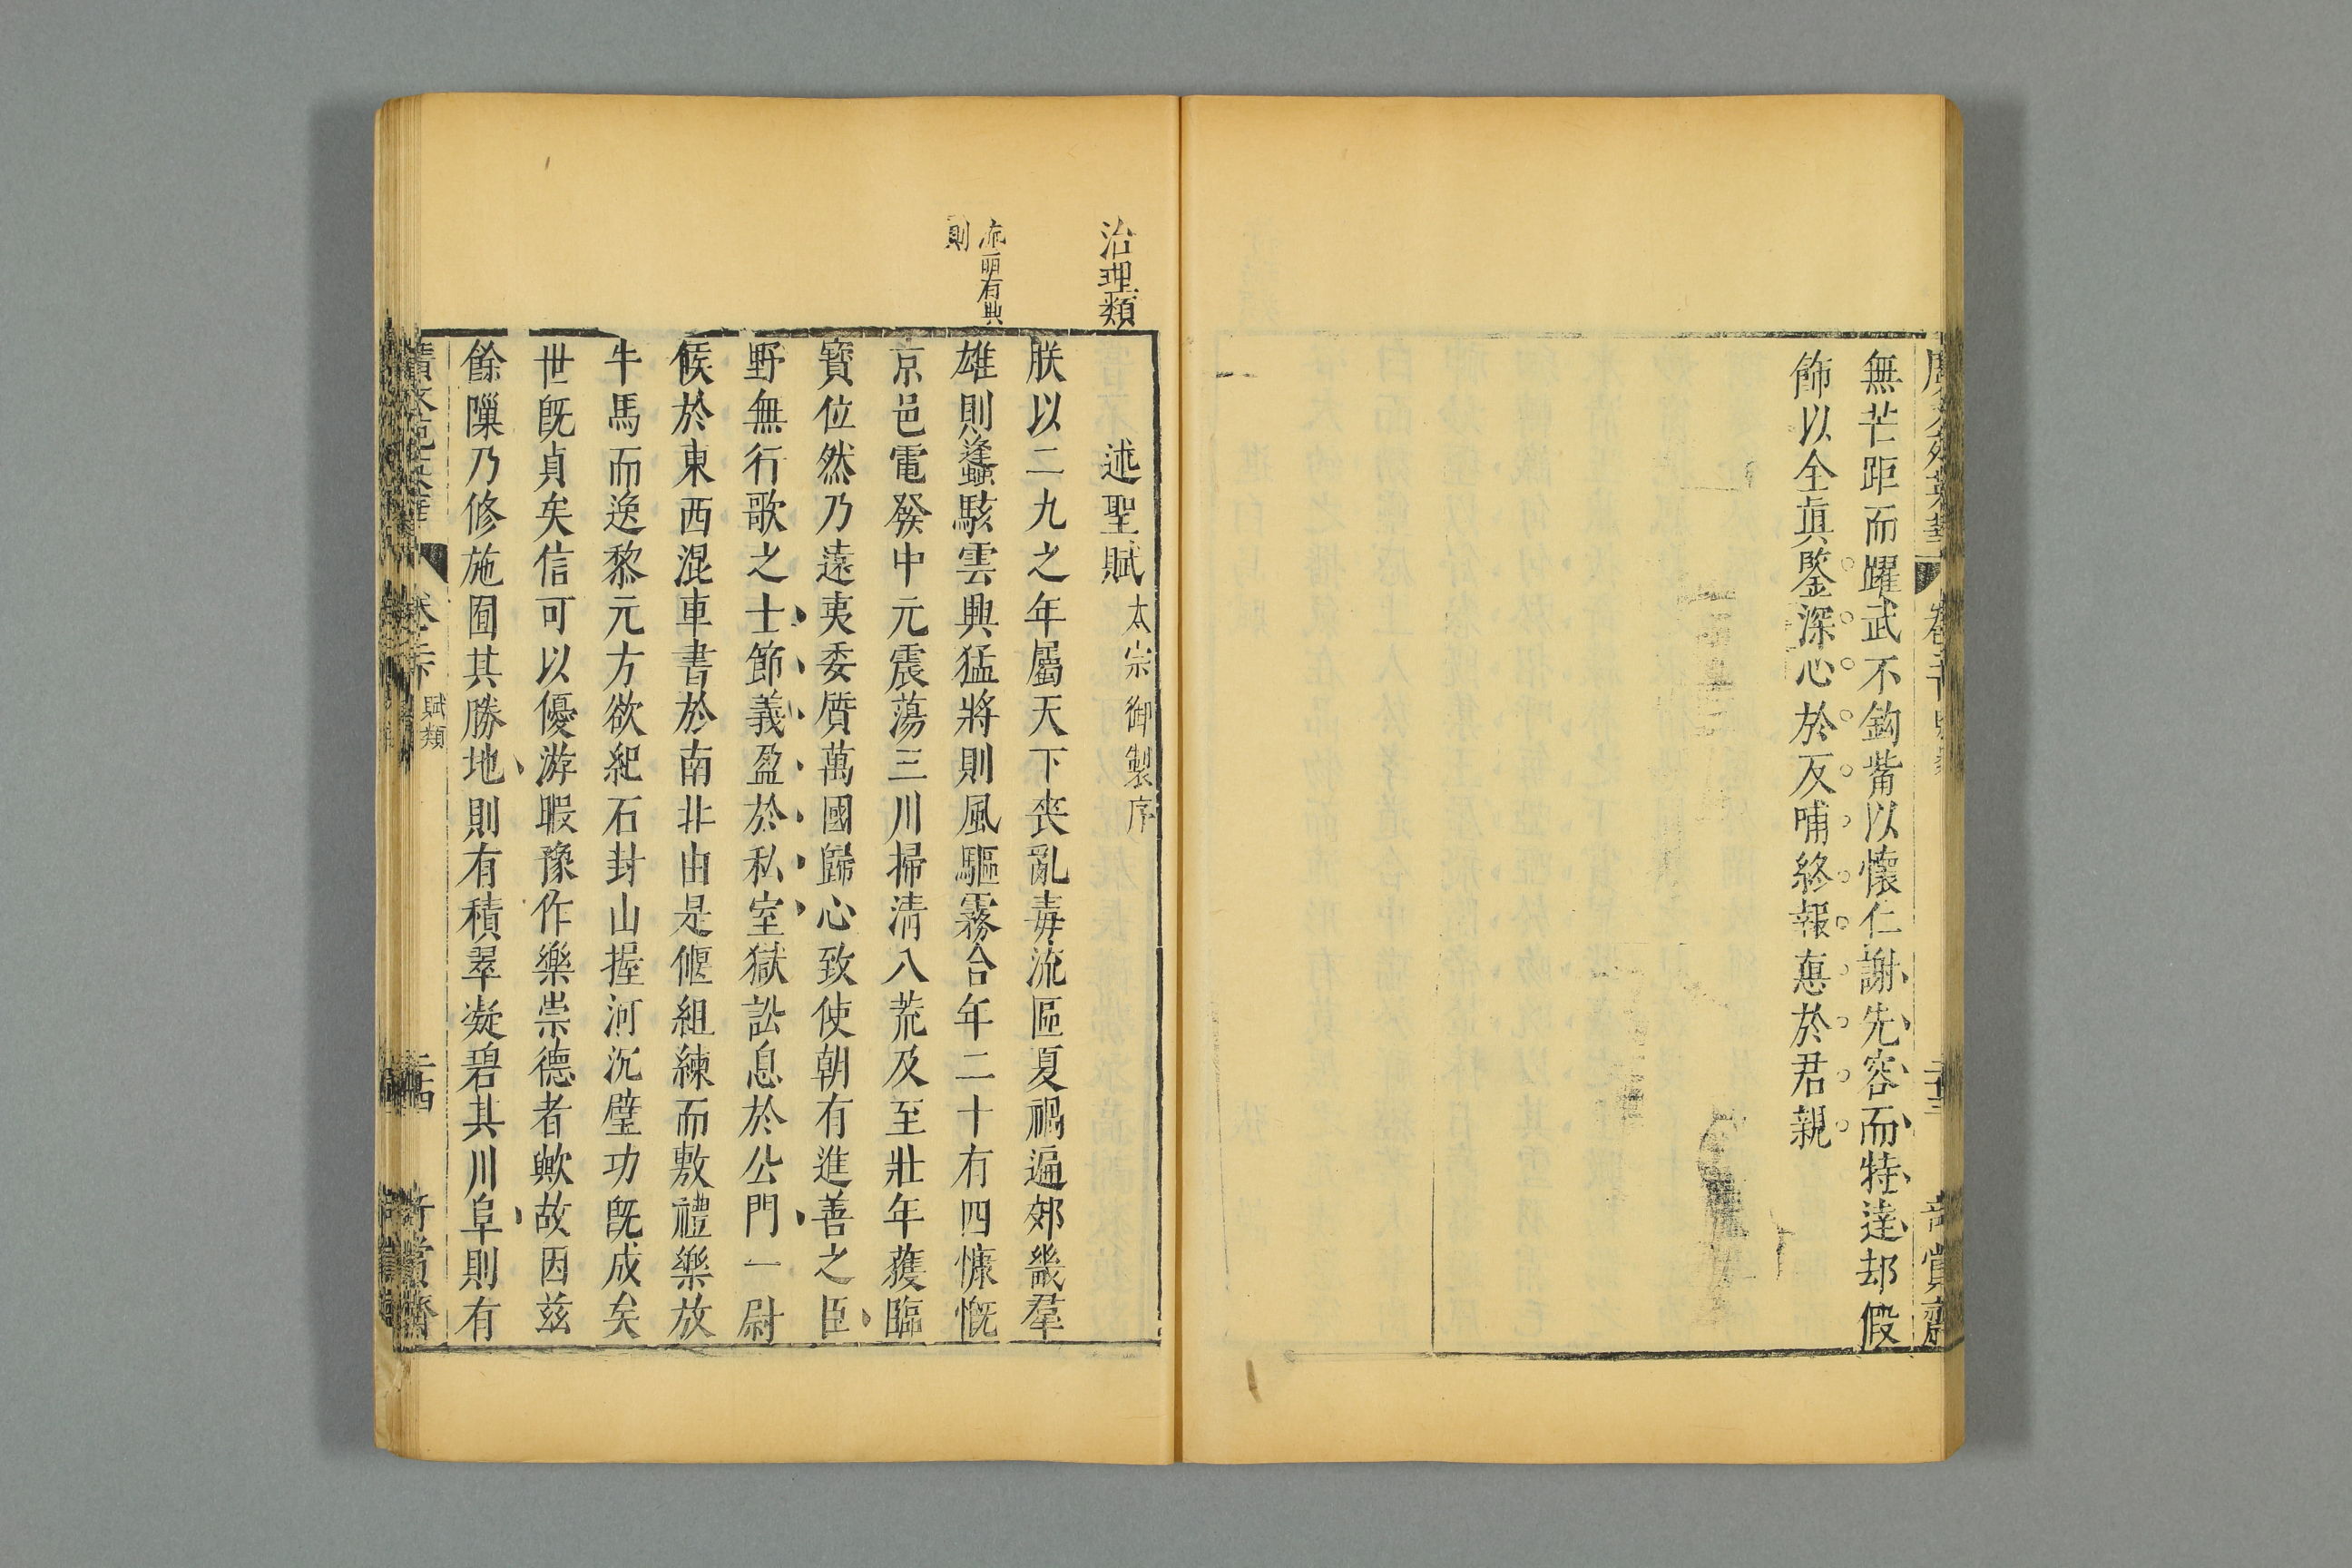 無芒距而躍武不鈎觜以懷仁謝先容而特達却假
飾以全眞鑒深心於反哺終報惪於君親
治理類
述聖賦太宗御製序
朕以二九之年屬天下喪亂毒流區夏禍遍郊畿羣
流麗有典
則
雄則蠭駭雲興猛將則風驅霧合年二十有四慷慨
京邑電發中元震蕩三川掃淸八荒及至壯年蕿臨
寳位然乃遠夷委質萬國歸心致使朝有進善之臣
野無行歌之士節義盈於私室獄訟息於公門一尉
候於東西混車書於南北由是偃組練而敷禮樂放
牛馬而逸黎元方欲紀石封山握河沉璧功旣成矣
世旣貞矣信可以優游暇豫作樂崇德者歟故因兹
餘隟乃修施囿其勝地則有積翠凝碧其川阜則有
賦類